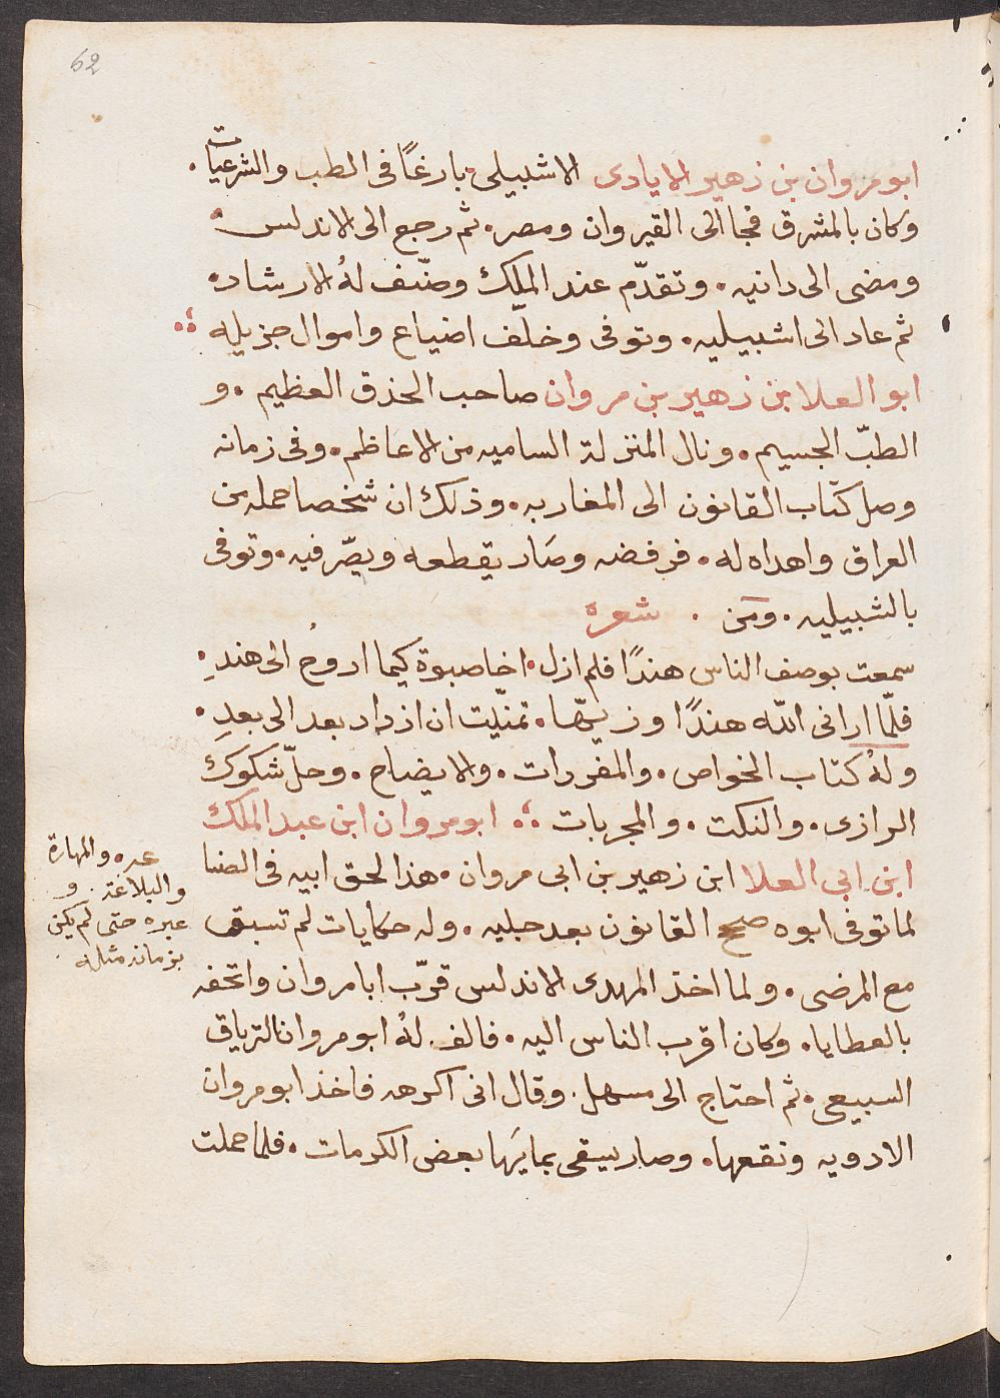 62
ابو مروان بن زهير الايادى الاشبيلى • بارغًا فى الطب والشرعيات •
وكان بالمشرق فجا الى القيروان ومصر • ثم رجع الى الاندلس •
ومضى الى دانيه • وتقدّم عند الملك وصنّف لهُ الارشاد •
ثم عاد الى اشبيليه • وتوفى وخلّف اضياع واموال جزيله
ابو العلا بن زهير بن مروان صاحب الحذق العظيم • و
الطبّ الجسيم • ونال المنزلة الساميه من الاعاظم • وفى زمانه
وصل كتاب القانون الى المغاربه • وذلك ان شخصا حمله من
العراق واهداه له • فرفضه وصَار يقطعه ويصّر فيه • وتوفى
بالشبيليه • ومَن • شعره
سمعت بوصف الناس هندًا فلم ازل • اخا صبوة كيما اروحُ الى هندِ •
فلمّا ارانى اللّه هندًا وزيّها • تمنّيت ان ازداد بعد الى بعدِ •
ولهُ كتاب الخواص • والمفردات • والايضاح • وحلّ شكوك
الرازى • والنكت • والمجربات ؛ ابو مروان ابن عبد الملك
ابن ابى العلا ابن زهير بن ابى مروان • هذا لحق ابيه فى الصنا
عه • والمهارة
والبلاغة • و
عبره حتى لم يكن
بزمانه مثله •
لما توفى ابوه صحح القانون بعد جبليه • وله حكايات لم تسبق
مع المرضى • ولما اخذ المهدى الاندلس قرّب ابا مروان واتحفه
بالعطايا • وكان اقرب الناس اليه • فالف لهُ ابو مروان الترياق
السبيعى • ثم احتاج الى مسهل • وقال انى اكرهه فاخذ ابو مروان
الادويه ونقعها • وصار يسقى بمايَها بعض الكرمات • فلما حملت